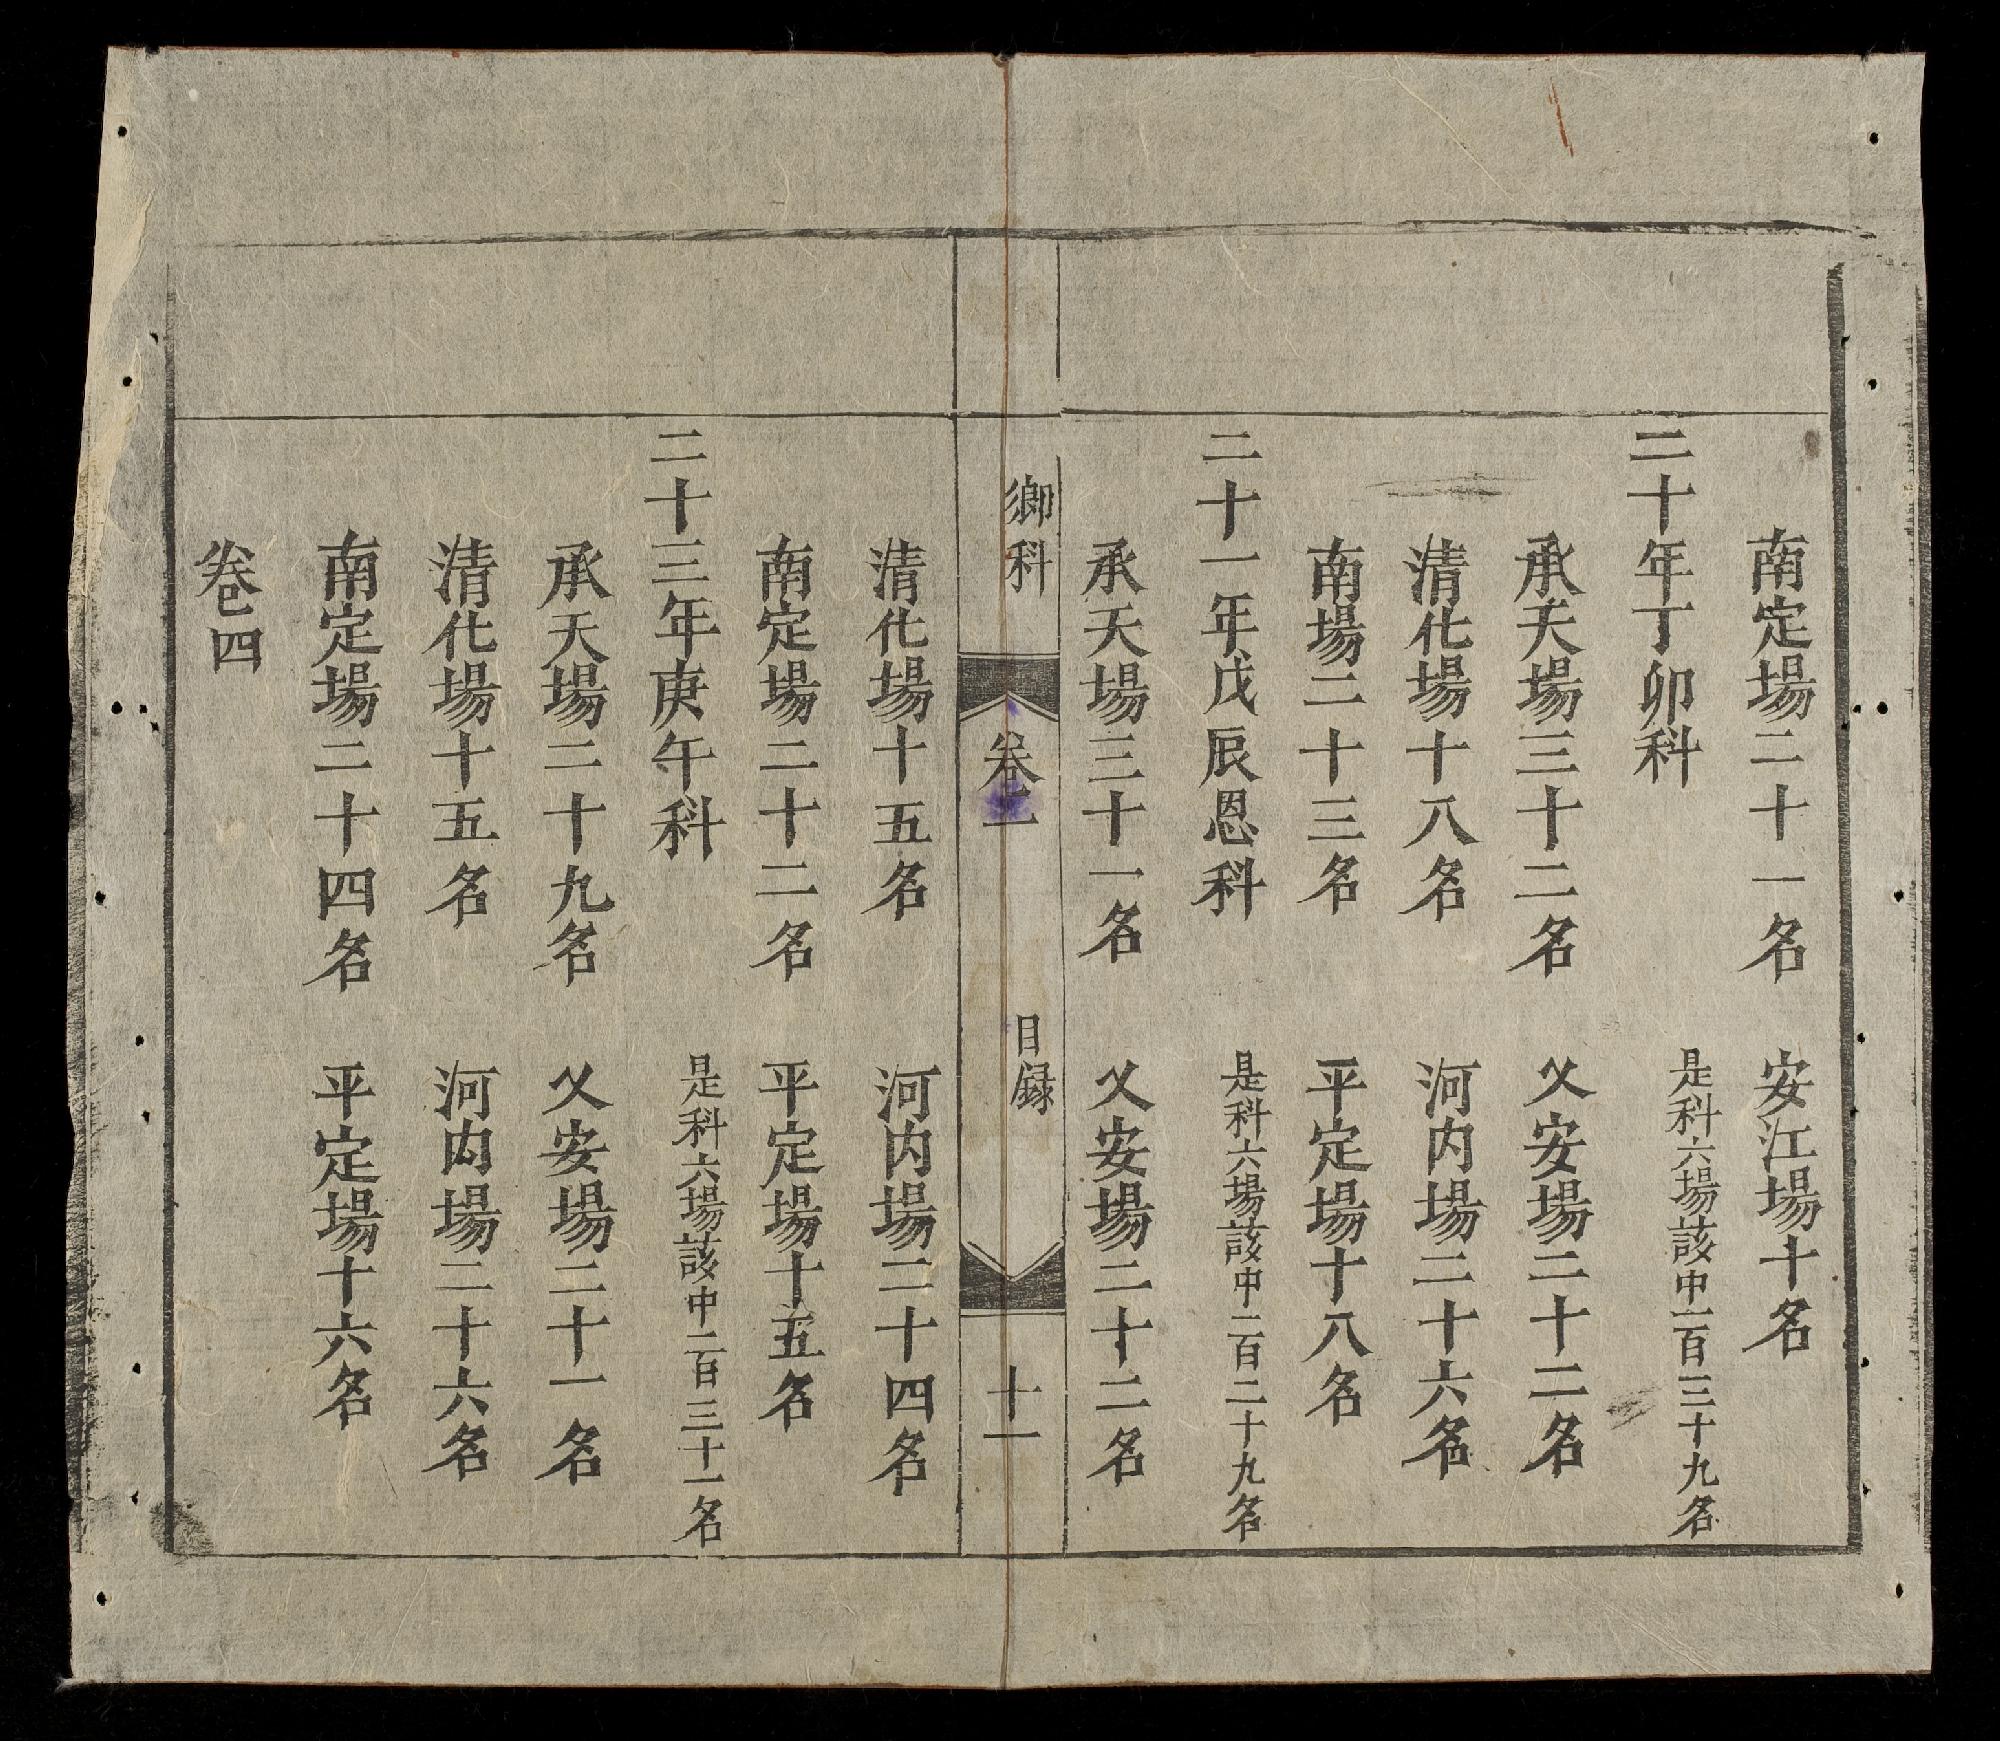 南定場二十一名　安江場十名
二十年丁卯科　是科六場該中一百三十九名
承天場三十二名　乂安場二十二名
清化場十八名　河内場二十六名
南場二十三名　平定場十八名
二十一年戊辰恩科　是科六場該中一百二十九名
承天場三十一名　乂安場二十二名
鄉科　卷一　目録　十一
清化場十五名　河内場二十四名
南定場二十二名　平定場十五名
二十三年庚午科　是科六場該中一百三十一名
承天場二十九名　乂安場二十一名
清化場十五名　河内場二十六名
南定場二十四名　平定場十六名
卷四